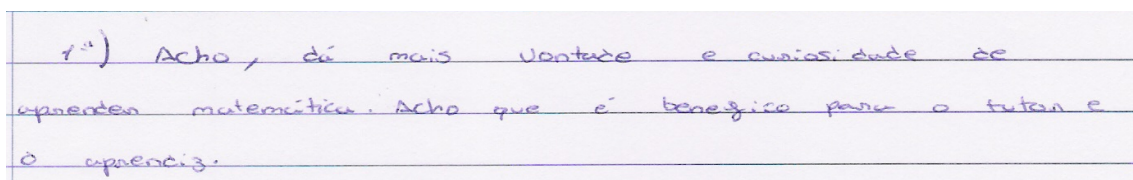 1ª) Acho, dá mais vontade e curiosidade de
aprender matemática. Acho que é benefico para o tutor e
o aprendiz.